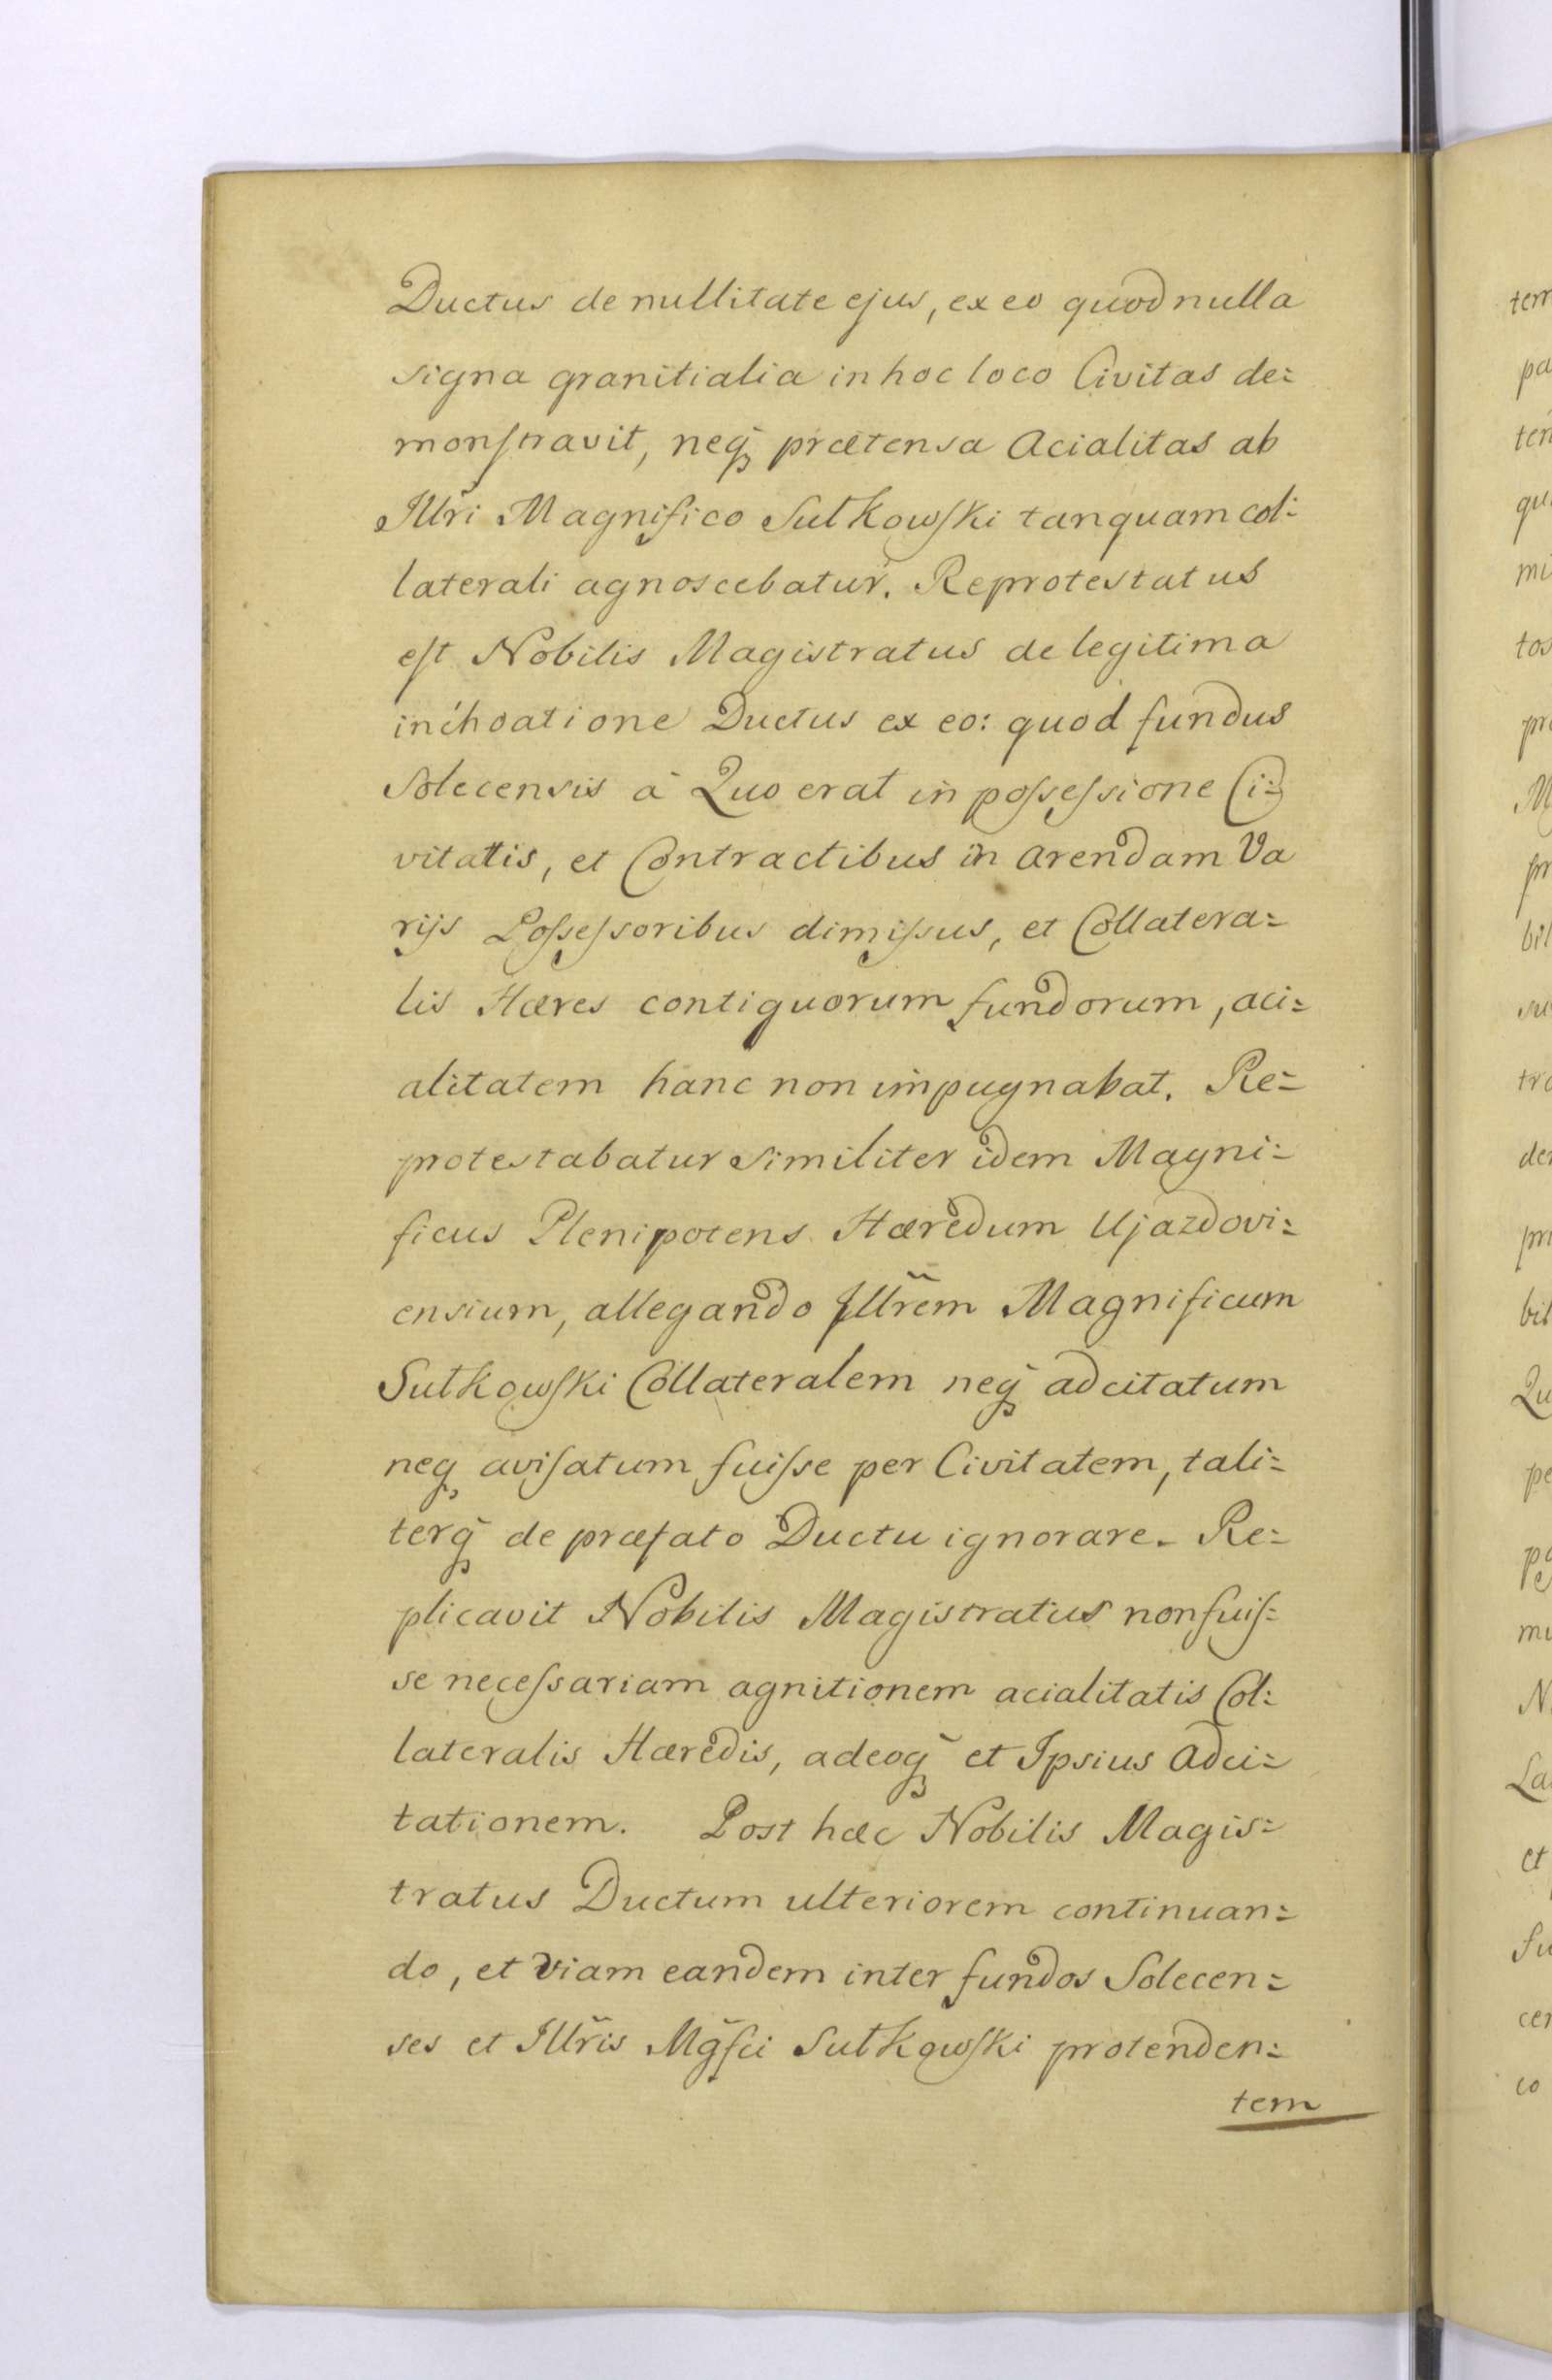 Ductus de nullitate ejus, ex eo quod nulla
signa granitialia in hoc loco Civitas de=
monſtravit, neq̃ prætensa Acialitas ab
Illr̃i Magnifico Sułkowſki tanquam col=
laterali agnoscebatur. Reprotestatus
eſt Nobilis Magistratus de legitima
inchoatione Ductus ex eo: quod fundus
Solecensis à Quo erat in poſseſsione Ci=
vitatis, et Contractibus in Arendam Va
rijs Poſseſsoribus dimiſsus, et Collatera=
lis Hæres contiguorum fundorum, aci=
alitatem hanc non impugnabat. Re=
protestabatur similiter idem Magni=
ficus Plenipotens Hæredum Ujazdovi=
ensium, allegando Illr̃em Magnificum
Sułkowſki Collateralem neq̃ adcitatum
neq aviſatum fuiſse per Civitatem, tali=
terq̃ de præfato Ductu ignorare. Re=
plicavit Nobilis Magistratus non fuiſ=
se neceſsariam agnitionem acialitatis Col=
lateralis Hæredis, adeoq̃ et Ipsius Adci=
tationem. Post hæc Nobilis Magis=
tratus Ductum ulteriorem continuan=
do, et Viam eandem inter fundos Solecen=
ses et Illr̃is Mg̃fci Sułkowſki protenden=
tem
tem
pa
ten
qu
mi
tos
pro
M
pr
bil
su
tra
der
pr
bil
Qu
pe
mu
N
La
et
Su
cer
co